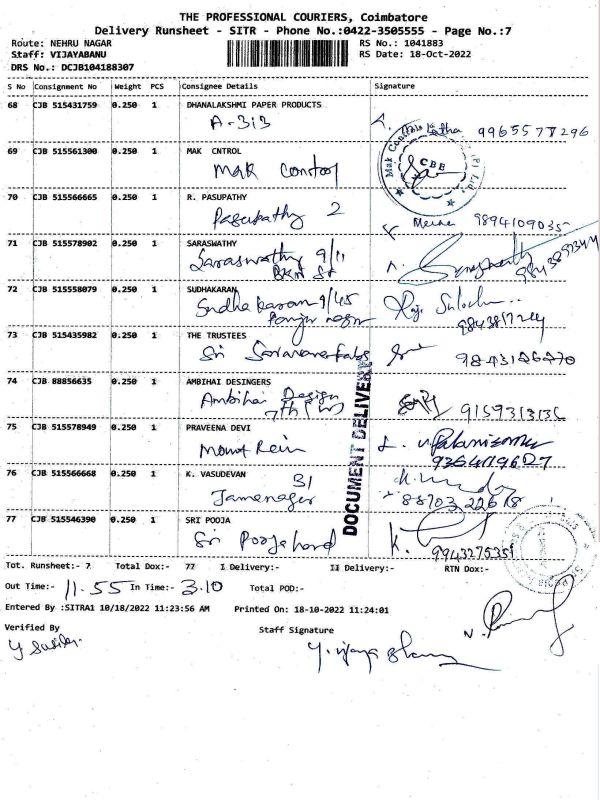 THE PROFESSIONAL COURIERS, Coimbatore
Delivery Runsheet - SITR - Phone No.:0422-3505555 - Page No.:7
Route: NEHRU NAGAR RS No.: 1041883
Staff: VIJAYABANU RS Date: 18-Oct-2022
DRS No.: DCJB104188307
S No Consignment No Weight PCS Consignee Details Signature
68 CJB 515431759 0.250 1 DHANALAKSHMI PAPER PRODUCTS
A-313 Latha 9965577296
69 CJB 515561300 0.250 1 MAK CNTROL
MAK Control CBE
70 CJB 515566665 0.250 1 R. PASUPATHY
Pasupathy 2 Meena 9894109035
71 CJB 515578902 0.250 1 SARASWATHY
Saraswathy 9/11
BKR St
72 CJB 515558079 0.250 1 SUDHAKARAN
Sudhakaran 9/45
nagar 9843817244
73 CJB 515435982 0.250 1 THE TRUSTEES
Sri 9843126270
74 CJB 88856635 0.250 1 AMBIHAI DESINGERS
Ambihai Design
7th (W) 9159313136
75 CJB 515578949 0.250 1 PRAVEENA DEVI
Mount Rein
76 CJB 515566668 0.250 1 K. VASUDEVAN
31
Jamenager 88703 22618
77 CJB 515546390 0.250 1 SRI POOJA
Sri Pooja K. 9943275351
DOCUMENT DELIVERY
Tot. Runsheet:- 7 Total Dox:- 77 I Delivery:- II Delivery:- RTN Dox:-
Out Time:- 11.55 In Time:- 3.10 Total POD:-
Entered By :SITRA1 10/18/2022 11:23:56 AM Printed On: 18-10-2022 11:24:01
Verified By Staff Signature